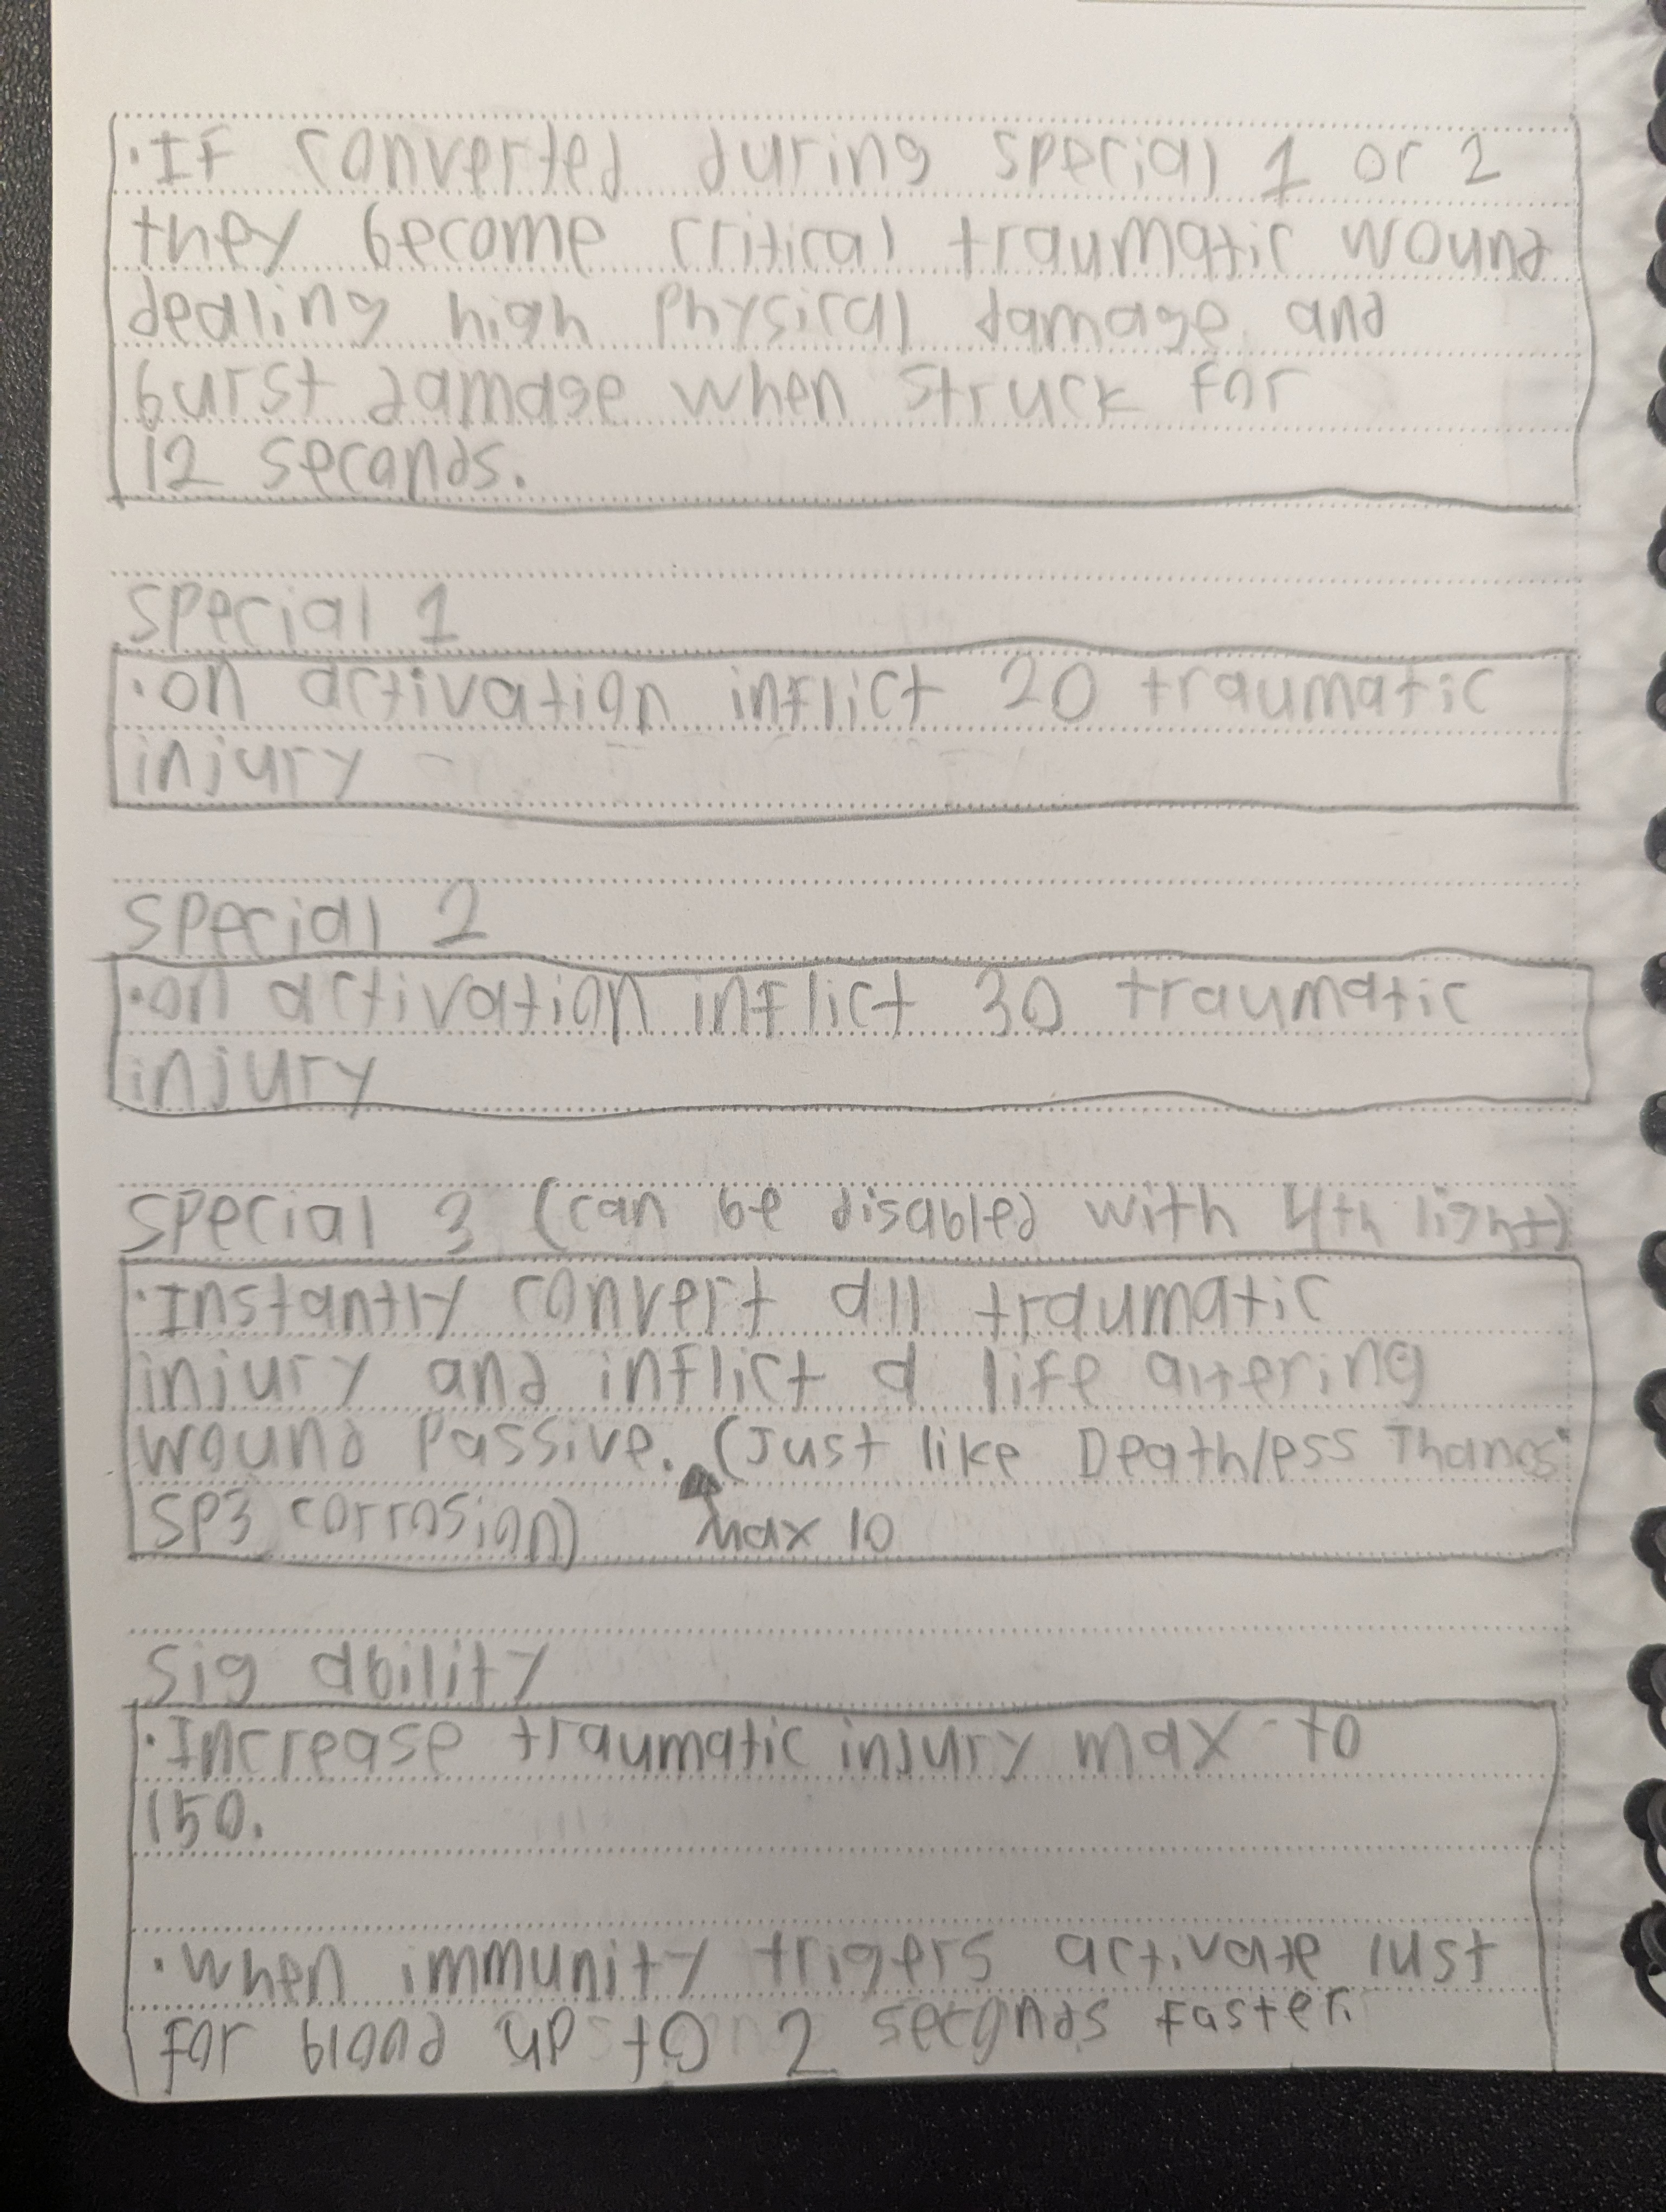 ·If converted during special 1 or 2
they become critical traumatic wound
dealing high physical damage and
burst damage when struck for
12 seconds.
special 1
·on activation inflict 20 traumatic
injury
special 2
·on activation inflict 30 traumatic
injury
special 3 (can be disabled with 4th light)
·Instantly convert all traumatic
injury and inflict a life altering
wound passive. (Just like Deathless Thanos
SP3 corrosion) max 10
sig ability
·Increase traumatic injury max to
150.
·when immunity trigers activate lust
for blood up to 2 seconds faster.